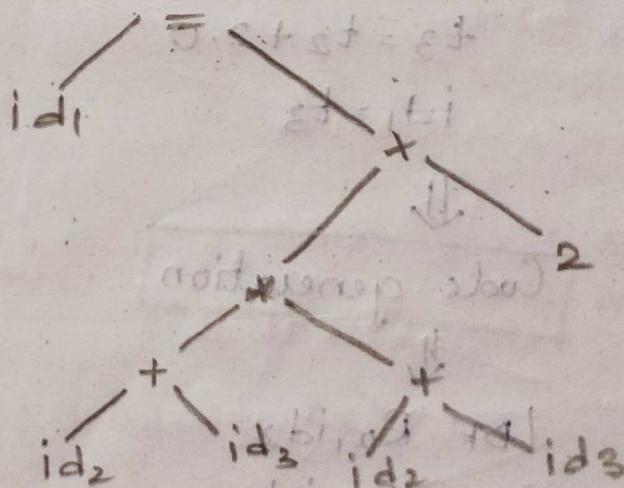 =
id1
x
2
*
+ +
id2 id3 id2 id3